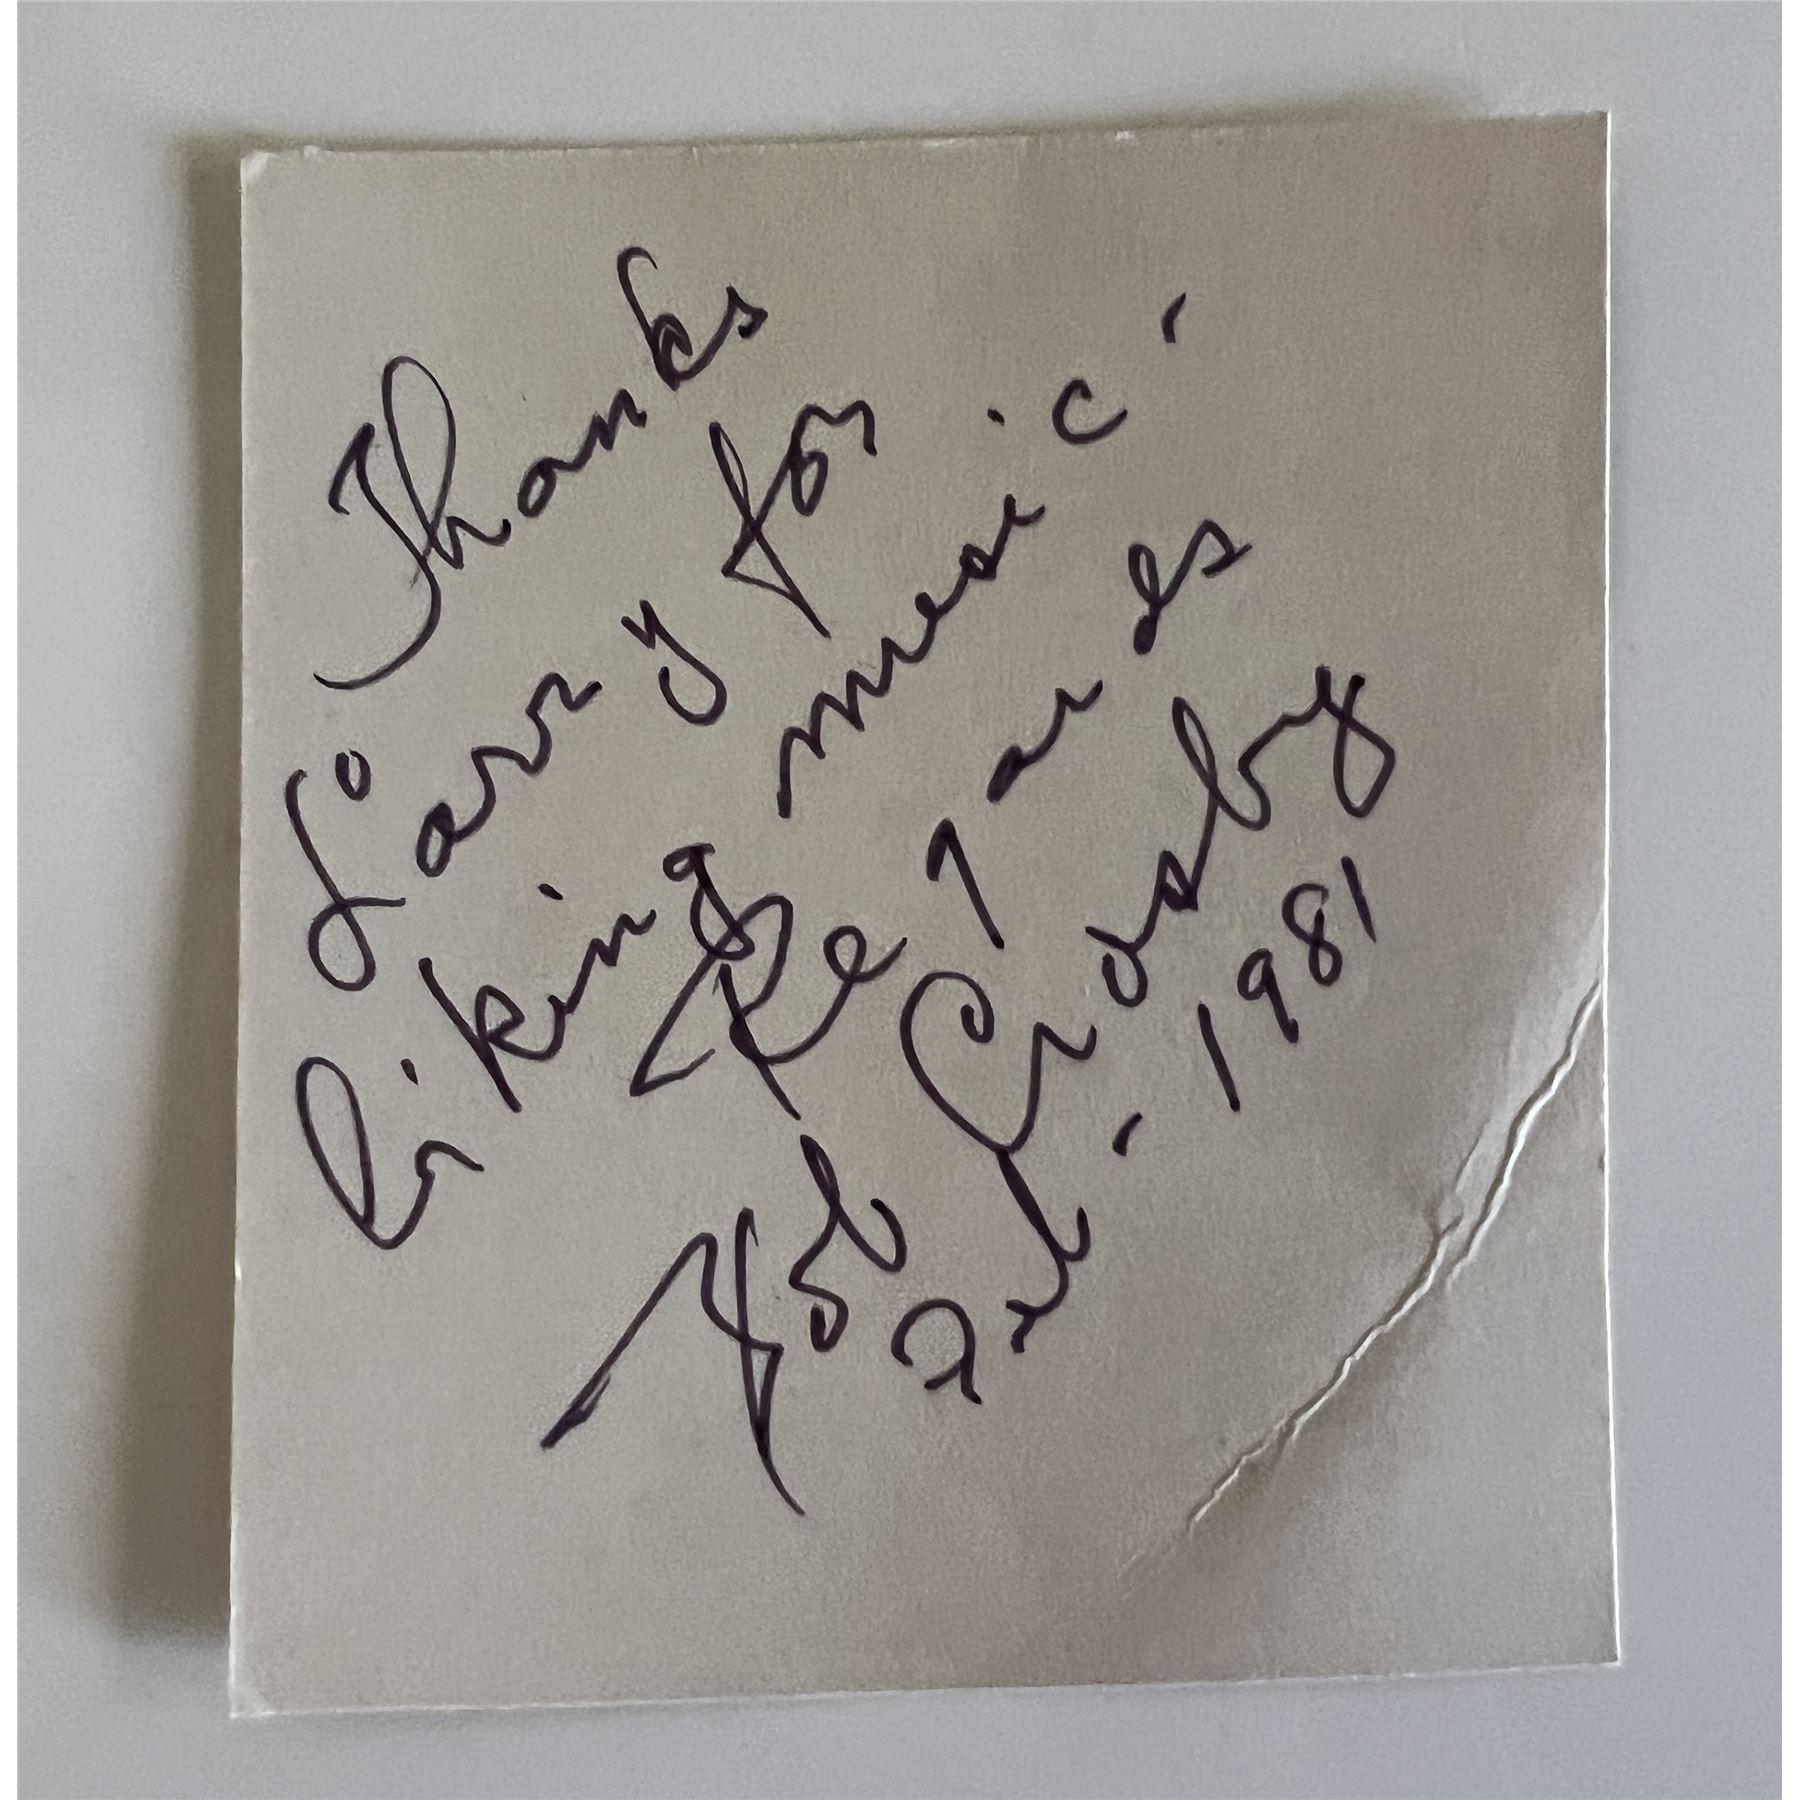 Thanks
Larry for
liking music -
Re 1 ar es
Bob Crosby
Jul - 1981